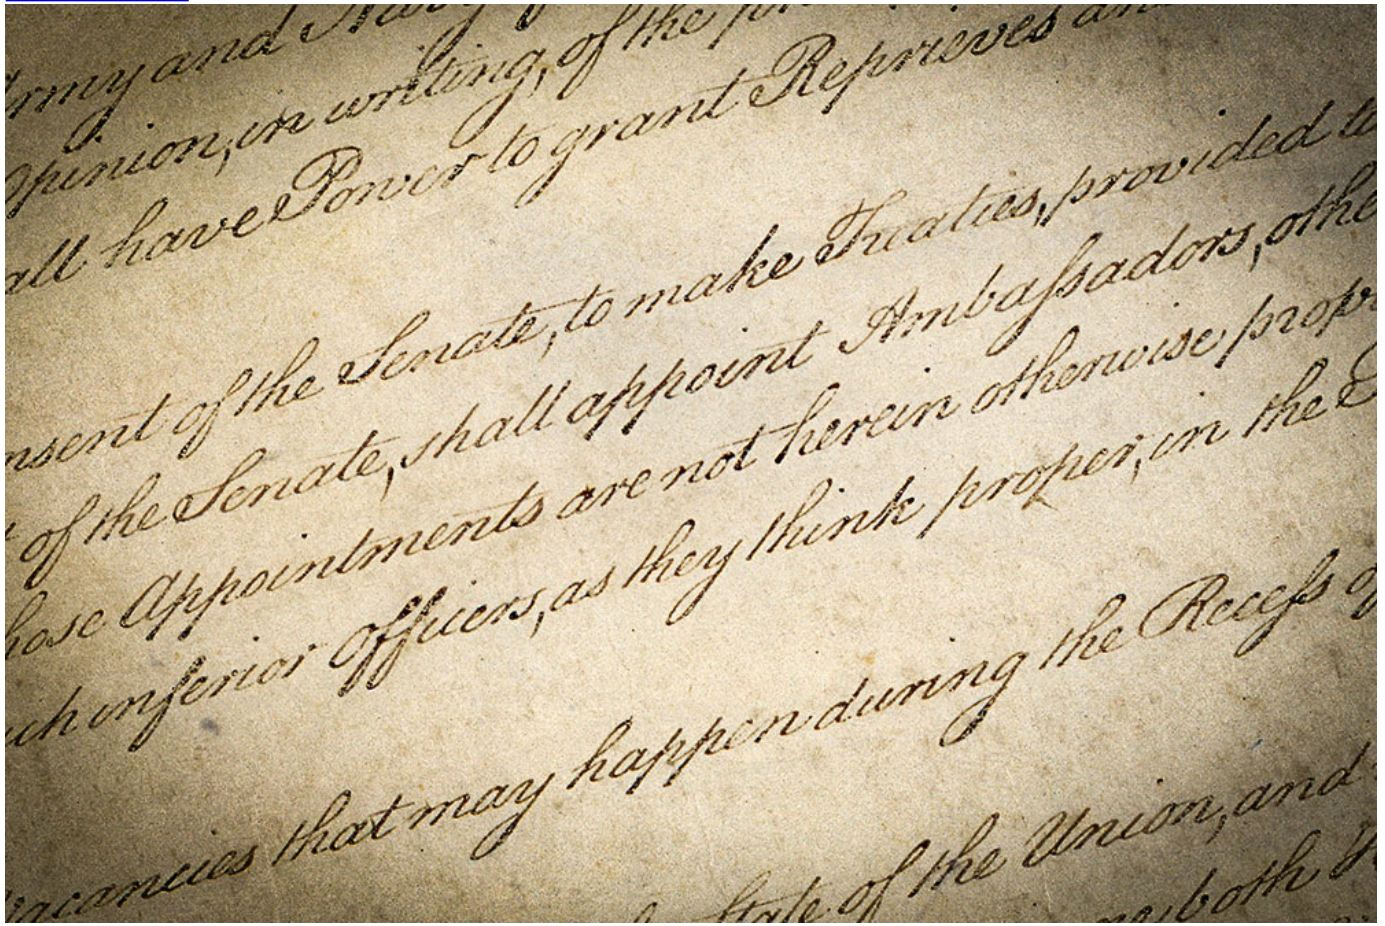 Army and Navy
Opinion, in writing, of the
all have Power to grant Reprieves an
nsent of the Senate, to make Treaties, provided t
of the Senate, shall appoint Ambaſsadors, othe
hose Appointments are not herein otherwise prov
uch inferior Officers, as they think proper, in the
Vacancies that may happen during the Receſs of
State of the Union, and
both H